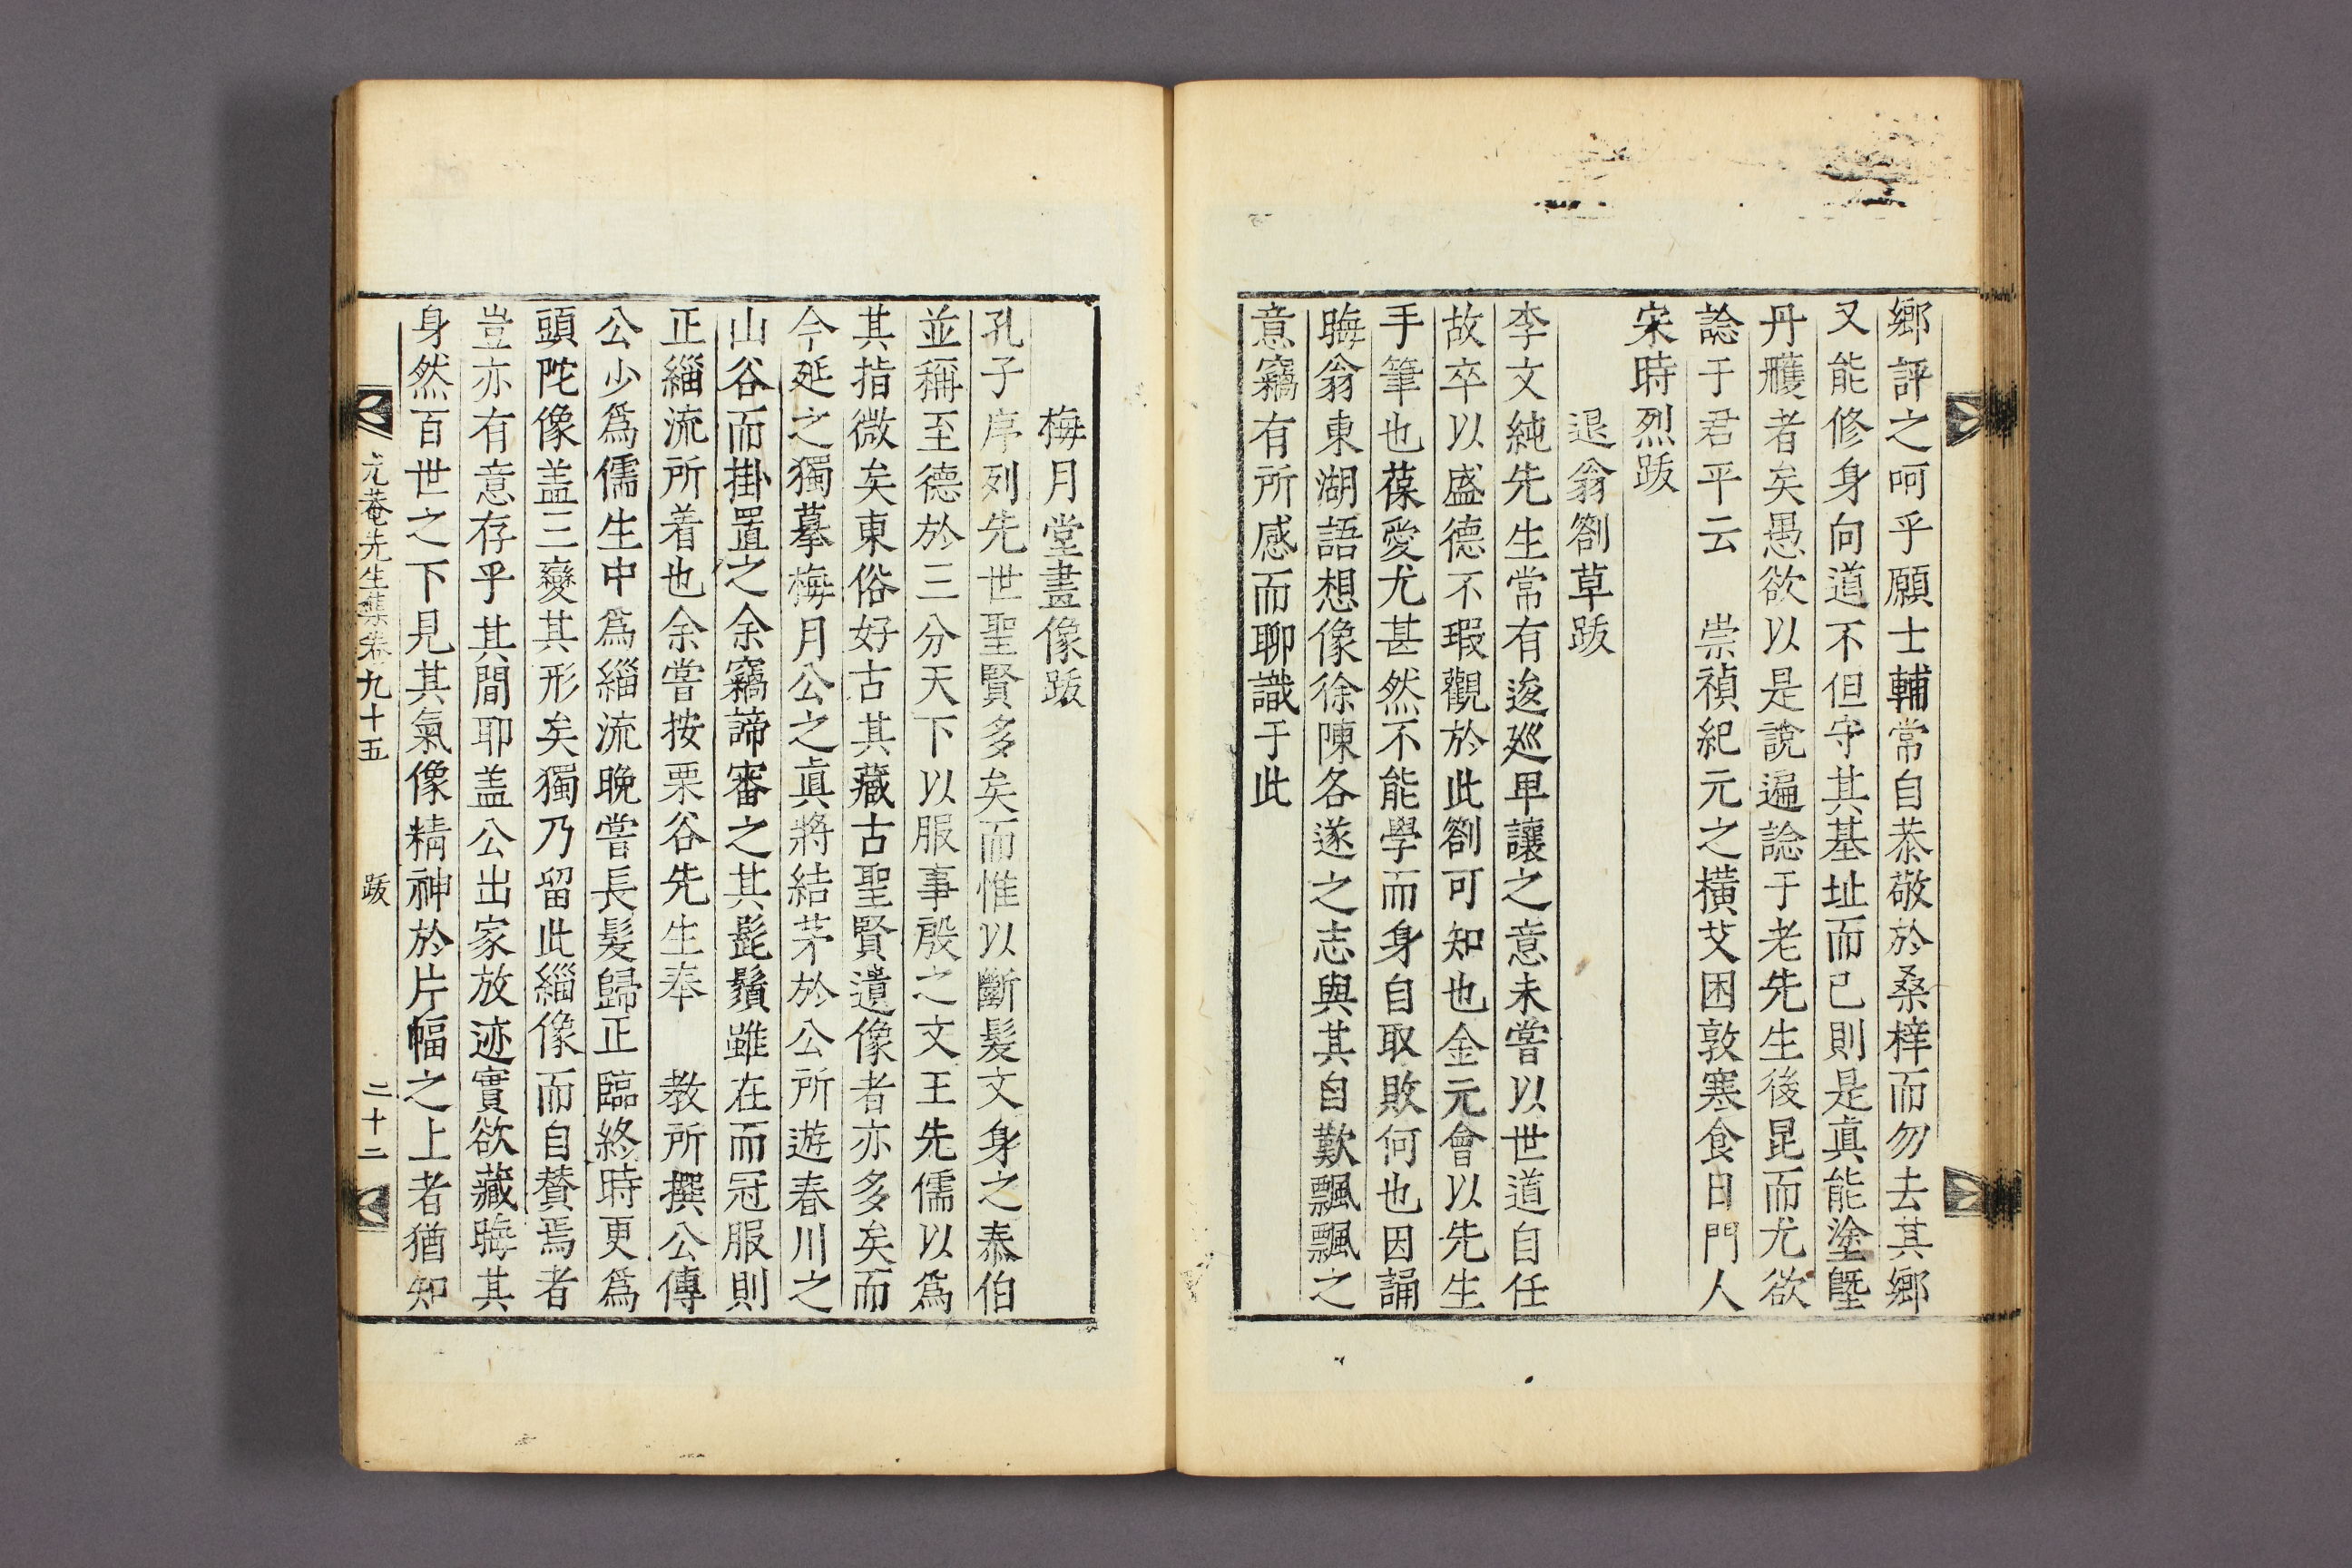 鄉評之呵乎願士輔常自恭敬於桑梓而勿去其鄉
又能修身向道不但守其基址而已則是眞能塗墍
丹雘者矣愚欲以是說遍諗于老先生後昆而尤欲
諗于君平云　崇禎紀元之橫艾困敦寒食日門人
宋時烈跋
退翁劄草跋
李文純先生常有逡廵卑讓之意未嘗以世道自任
故卒以盛德不瑕觀於此劄可知也金元會以先生
手筆也葆愛尤甚然不能學而身自取敗何也因誦
晦翁東湖語想像徐陳各遂之志與其自歎飄飄之
意竊有所感而聊識于此
梅月堂畫像跋
孔子序列先世聖賢多矣而惟以斷髮文身之泰伯
並稱至德於三分天下以服事殷之文王先儒以爲
其指微矣東俗好古其藏古聖賢遺像者亦多矣而
今延之獨摹梅月公之眞將結茅於公所遊春川之
山谷而掛置之余竊諦審之其髭鬚雖在而冠服則
正緇流所着也余嘗按栗谷先生奉　教所撰公傳
公少爲儒生中爲緇流晩嘗長髮歸正臨終時更爲
頭陀像盖三變其形矣獨乃留此緇像而自贊焉者
豈亦有意存乎其間耶盖公出家放迹實欲藏晦其
身然百世之下見其氣像精神於片幅之上者猶知
尤菴先生集卷九十五　跋　二十二